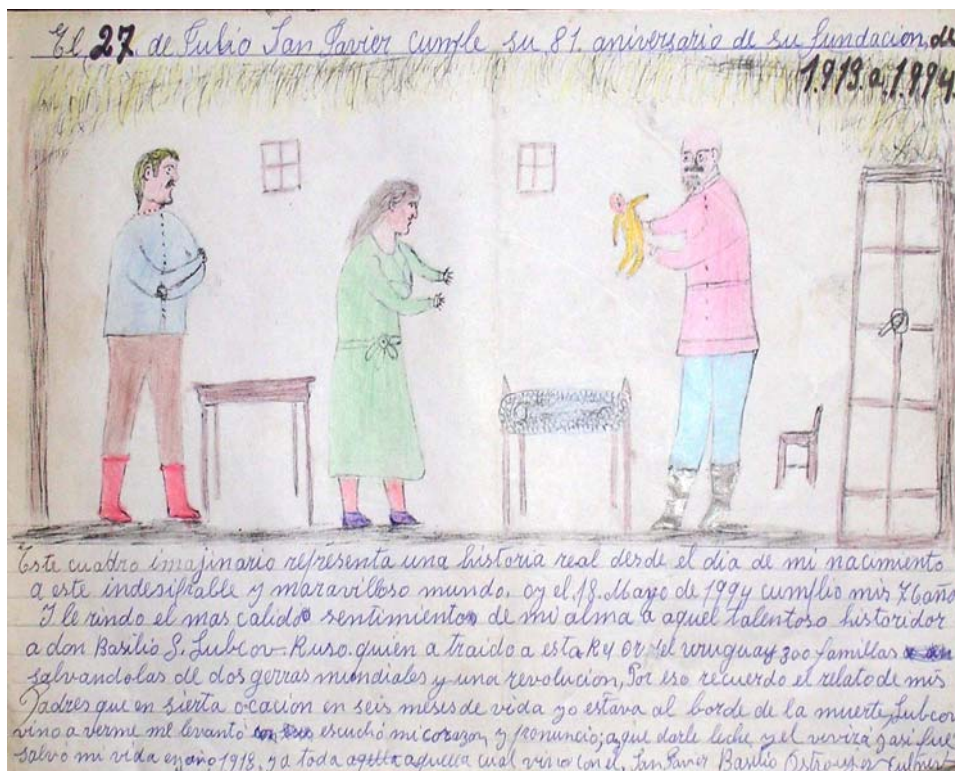 El 27 de Julio San Javier cumple su 81 aniversario de su fundacion, de
1.913. a, 1.994.
Este cuadro imajinario representa una historia real desde el dia de mi nacimiento
a este indesifrable y maravilloso mundo. oy el 18. Mayo de 1994 cumplio mis 76 año
I le rindo el mas calido sentimiento de mi alma a aquel talentoso historidor
a don Basilio S. Lubcov. Ruso. quien a traido a esta R y Or. del uruguay 300 familias
salvandolas de dos gerras mundiales y una revolucion, Por eso recuerdo el relato de mis
Padres que en sierta ocacion en seis meses de vida yo estava al borde de la muerte, Lubcov
vino a verme me levantó escuchó mi corazon, y pronuncio; a que darle leche, y el vivirá y asi fue
salvó mi vida en año 1918, y a toda aquella cual vino con el, San Javier Basilio